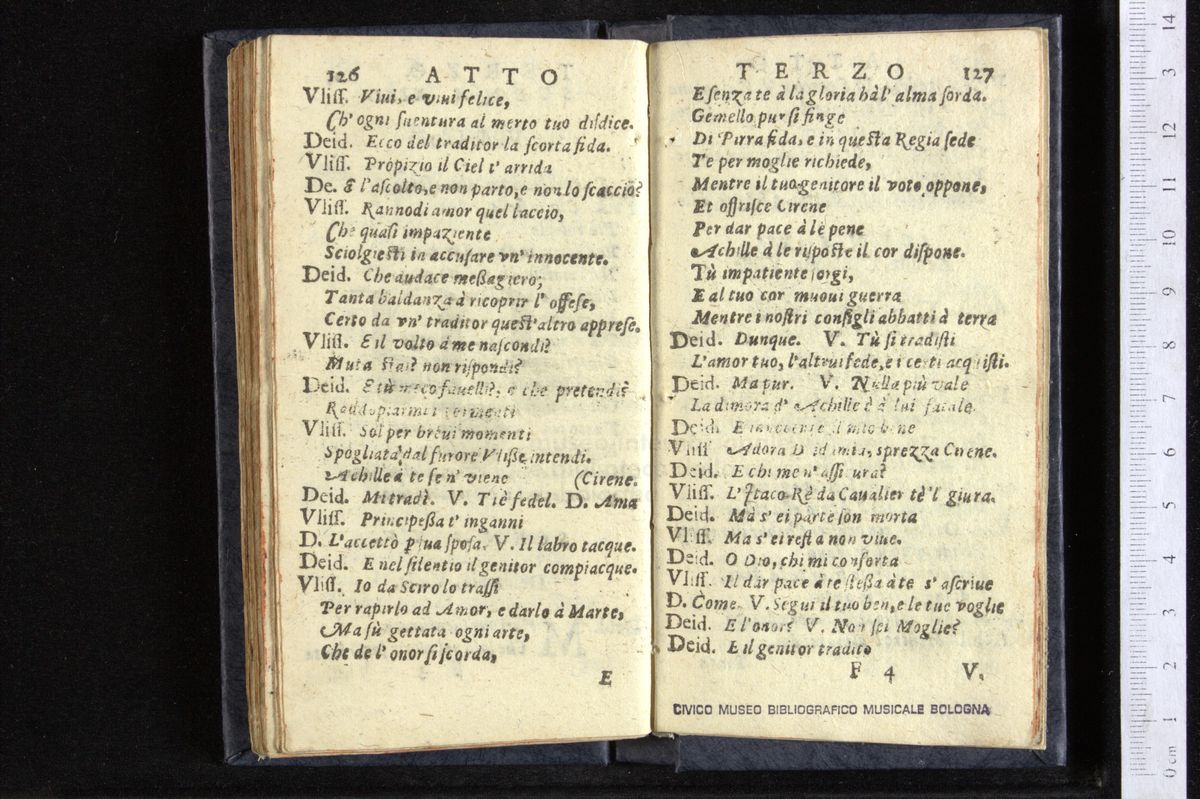 126 ATTO
Vliſſ. Viui, e viui felice,
Ch' ogni ſuentura al merto tuo diſdice.
Deid. Ecco del traditor la ſcorta fida.
Vliſſ. Propizio il Ciel t' arrida
De. E l'aſcolto, e non parto, e non lo ſcaccio?
Vliſſ. Rannodi amor quel laccio,
Che quaſi impaziente
Sciolgieſti in accuſare vn' innocente.
Deid. Che audace meßagiero;
Tanta baldanza à ricoprir l' offeſe,
Certo da vn' traditor queſt'altro appreſe.
Vliſſ. E il volto à me naſcondi?
Muta ſtai? non riſpondi?
Deid. E tù meco fauelli?, e che pretendi?
Raddopiarmi i tormenti
Vliſſ. Sol per breui momenti
Spogliata dal furore Vliße intendi.
Achille à te ſe n' viene (Cirene.
Deid. Mi tradì. V. Tiè fedel. D. Ama
Vliſſ. Principeßa t' inganni
D. L'accettò p ſua ſpoſa. V. Il labro tacque.
Deid. E nel ſilentio il genitor compiacque.
Vliſſ. Io da Sciro lo traſſi
Per rapirlo ad Amor, e darlo à Marte,
Ma fù gettata ogni arte,
Che de l' onor ſi ſcorda,
E
TERZO 127
E ſenza te à la gloria hà l' alma ſorda.
Gemello pur ſi finge
Di Pirra fida, e in queſta Regia ſede
Te per moglie richiede,
Mentre il tuo genitore il voto oppone,
Et offriſce Cirene
Per dar pace à le pene
Achille à le riſpoſte il cor diſpone.
Tù impatiente ſorgi,
E al tuo cor muoui guerra
Mentre i noſtri conſigli abbatti à terra
Deid. Dunque. V. Tù ſi tradiſti
L'amor tuo, l'altrui fede, e i certi acquiſti.
Deid. Ma pur. V. Nulla più vale
La dimora d' Achille è à lui fatale.
Deid. E innocente il mio bene
Vliſſ Adora Deidamia, sprezza Cirene.
Deid. E chi me n' aſſicura?
Vliſſ. L'Itaco Rè da Caualier tè'l giura.
Deid. Mà s' ei parte ſon morta
Vliſſ. Ma s' ei reſta non viue.
Deid. O Dio, chi mi conforta
Vliſſ. Il dar pace à te ſteßa à te s' aſcriue
D. Come. V. Segui il tuo ben, e le tue voglie
Deid. E l'onor? V. Non ſei Moglie?
Deid. E il genitor tradito
F 4 V.
CIVICO MUSEO BIBLIOGRAFICO MUSICALE BOLOGNA
14
3
12
11
10
9
8
7
6
5
4
3
2
1
0 cm